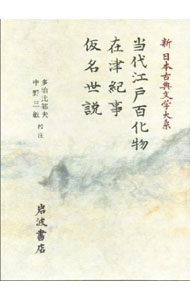 新日本古典文学大系
当代江戸百化物
在津紀事
仮名世説
多治比郁夫
中野三敏
校注
岩波書店